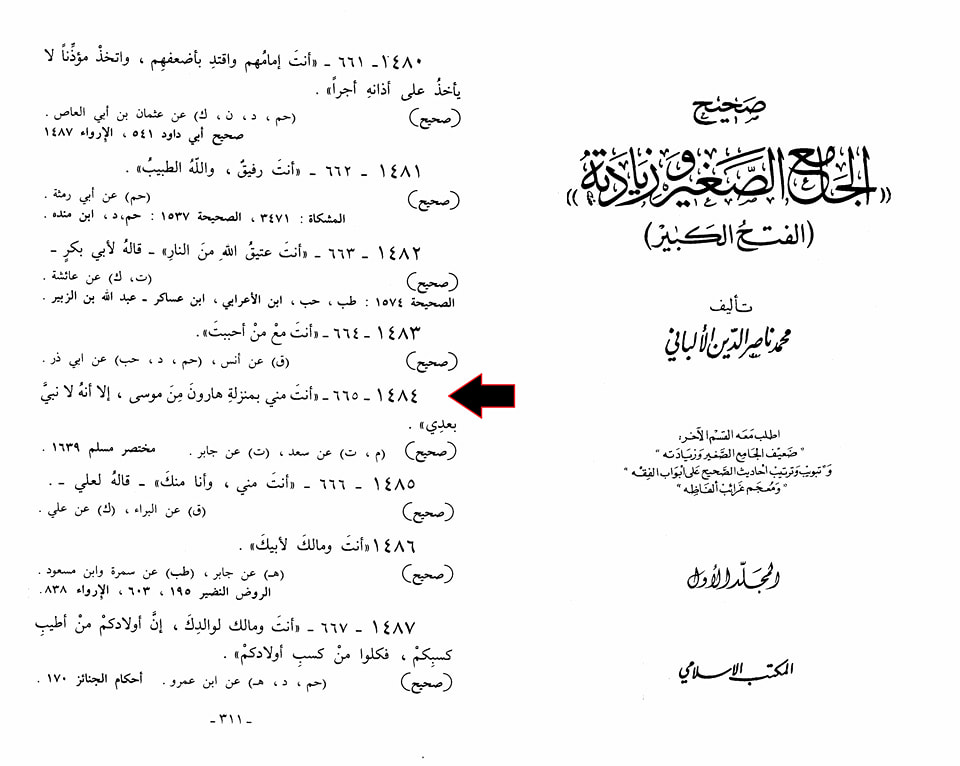 صحيح
الجامع الصغير وزيادته »
(الفتح الكبير)
تأليف
محمد ناصر الدين الألباني
اطلب معه القسم الآخر:
" ضعيف الجامع الصغير وزيادته "
و" تبويب وترتيب أحاديث الصحيح على أبواب الفقه "
" ومعجم غرائب ألفاظه "
المجلد الأول
المكتب الاسلامي
١٤٨٠ - ٦٦١ - «أنتَ إمامُهم واقتدِ بأضعفهِم ، واتخذْ مؤذِّناً لا
يأخذُ على أذانهِ أجراً» .
(صحيح) (حم ، د ، ن ، ك) عن عثمان بن أبي العاص .
صحيح أبي داود ٥٤١ ، الإرواء ١٤٨٧
١٤٨١ - ٦٦٢ - «أنتَ رفيقٌ ، واللّهُ الطبيبُ» .
(صحيح) (حم) عن أبي رمثة .
المشكاة : ٣٤٧١ ، الصحيحة ١٥٣٧ : حم،د ، ابن منده .
١٤٨٢ - ٦٦٣ - «أنتَ عتيقُ اللّهِ منَ النارِ» - قالهُ لأبي بكرٍ -
(صحيح) (ت، ك) عن عائشة .
الصحيحة ١٥٧٤ : طب ، حب ، ابن الأعرابي ، ابن عساكر - عبد الله بن الزبير .
١٤٨٣ - ٦٦٤ - «أنتَ معْ منْ أحببتَ» .
(صحيح) (ق) عن أنس ، (حم ، د ، حب) عن ابي ذر .
١٤٨٤ - ٦٦٥ - «أنتَ مني بمنزلةِ هارونَ مِنَ موسى ، إلا أنهُ لا نبيَّ
بعدِي» .
(صحيح) (م ، ت) عن سعد ، (ت) عن جابر . مختصر مسلم ١٦٣٩ .
١٤٨٥ - ٦٦٦ - «أنتَ مني ، وأنا منكَ» - قالهُ لعلي - .
(صحيح) (ق) عن البراء ، (ك) عن علي .
١٤٨٦ «أنتَ ومالكَ لأبيكَ» .
(صحيح) (هـ) عن جابر ، (طب) عن سمرة وابن مسعود .
الروض النضير ١٩٥ ، ٦٠٣ ، الإرواء ٨٣٨.
١٤٨٧ - ٦٦٧ - «أنتَ ومالك لوالدِكَ ، إنَّ أولادكمْ منْ أطيبِ
كسبِكمْ ، فكلوا منْ كسبِ أولادكمْ» .
(صحيح) (حم ، د ، هـ) عن ابن عمرو . أحكام الجنائز ١٧٠ .
- ٣١١ -